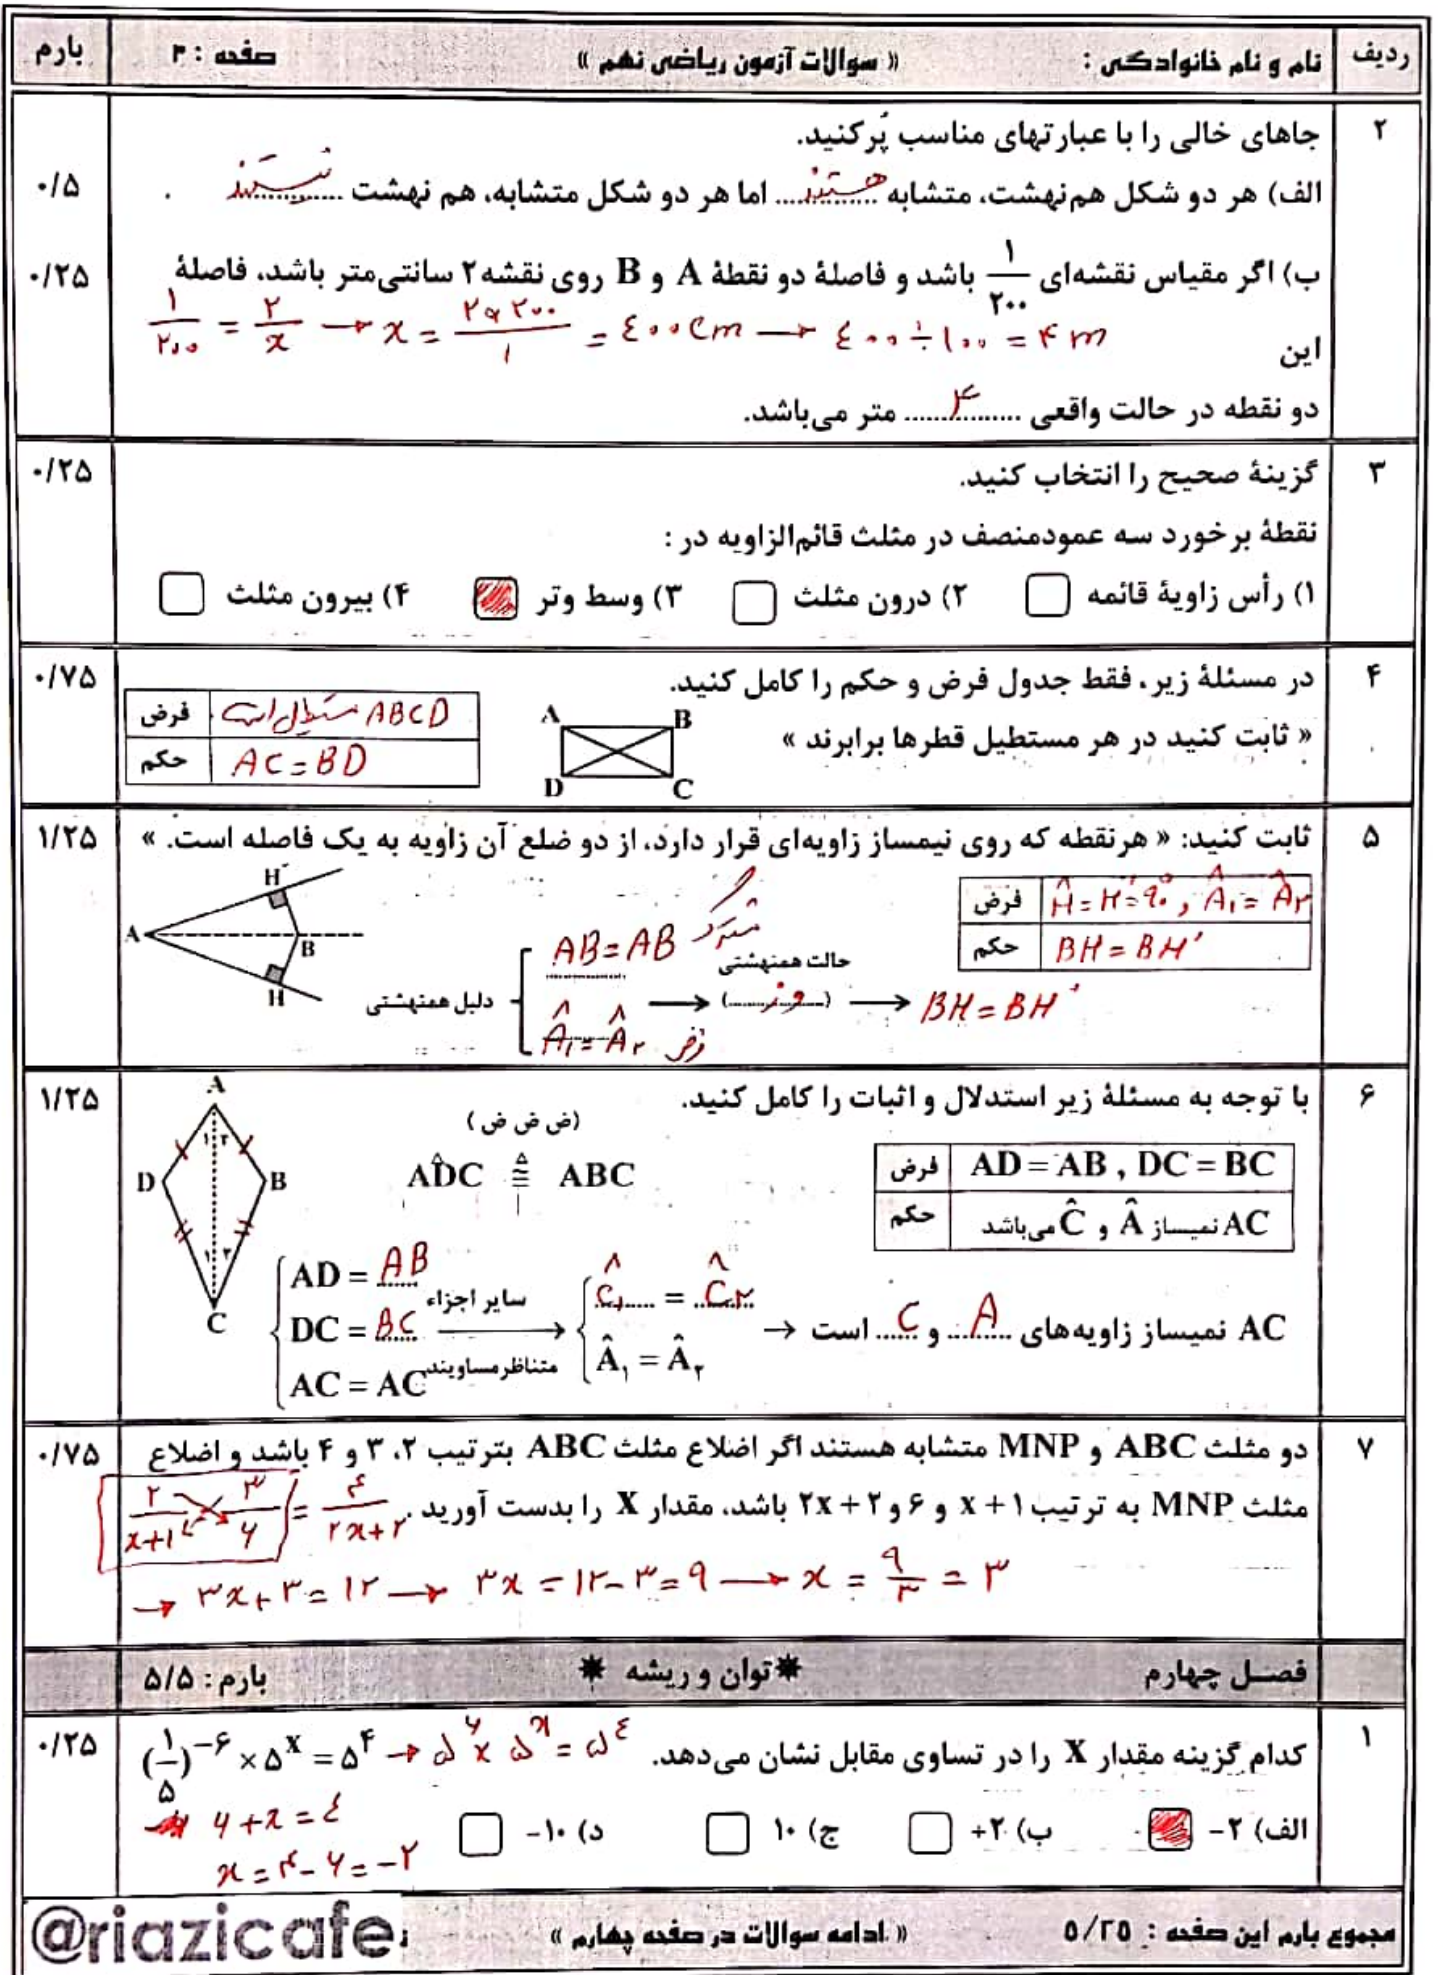 ردیف نام و نام خانوادگی : « سوالات آزمون ریاضی نهم » صفحه : ۳ بارم
۲ جاهای خالی را با عبارتهای مناسب پُرکنید.
الف) هر دو شکل هم‌نهشت، متشابه هستند اما هر دو شکل متشابه، هم نهشت نیستند . ۰/۵
ب) اگر مقیاس نقشه‌ای ۱/۲۰۰ باشد و فاصلهٔ دو نقطهٔ A و B روی نقشه ۲ سانتی‌متر باشد، فاصلهٔ ۰/۲۵
این
۱/۲۰۰ = ۲/x → x = ۲×۲۰۰/۱ = ٤۰۰cm → ٤۰۰ ÷ ۱۰۰ = ۴m
دو نقطه در حالت واقعی ۴ متر می‌باشد.
۳ گزینهٔ صحیح را انتخاب کنید. ۰/۲۵
نقطهٔ برخورد سه عمودمنصف در مثلث قائم‌الزاویه در :
۱) رأس زاویهٔ قائمه ۲) درون مثلث ۳) وسط وتر ۴) بیرون مثلث
۴ در مسئلهٔ زیر، فقط جدول فرض و حکم را کامل کنید. ۰/۷۵
« ثابت کنید در هر مستطیل قطرها برابرند »
A B
D C
فرض ABCD مستطیل است
حکم AC = BD
۵ ثابت کنید: « هرنقطه که روی نیمساز زاویه‌ای قرار دارد، از دو ضلع آن زاویه به یک فاصله است. » ۱/۲۵
H'
A B
H
فرض Ĥ = H' = ۹۰°, Â۱ = Â۲
حکم BH = BH'
دلیل همنهشتی
AB = AB مشترک
Â۱ = Â۲ فرض
حالت همنهشتی
→ (و ز) → BH = BH'
۶ با توجه به مسئلهٔ زیر استدلال و اثبات را کامل کنید. ۱/۲۵
(ض ض ض)
فرض AD = AB , DC = BC
حکم AC نمیساز Â و Ĉ می‌باشد
ADC ≅ ABC
A
۱ ۲
D B
۱ ۲
C
AD = AB
DC = BC
AC = AC
سایر اجزاء
متناظرمساویند
Ĉ۱ = Ĉ۲
Â۱ = Â۲
→ AC نمیساز زاویه‌های A و C است
۷ دو مثلث ABC و MNP متشابه هستند اگر اضلاع مثلث ABC بترتیب ۲، ۳ و ۴ باشد و اضلاع ۰/۷۵
مثلث MNP به ترتیب x + ۱ و ۶ و ۲x + ۲ باشد، مقدار X را بدست آورید.
۲/x+۱ = ۳/۶ = ۴/۲x+۲
→ ۳x + ۳ = ۱۲ → ۳x = ۱۲ - ۳ = ۹ → x = ۹/۳ = ۳
فصل چهارم * توان و ریشه * بارم : ۵/۵
۱ کدام گزینه مقدار X را در تساوی مقابل نشان می‌دهد. (۱/۵)^-۶ × ۵^x = ۵^۴ → ۵^۶ × ۵^x = ۵^٤ ۰/۲۵
الف) ۲- ب) ۲+ ج) ۱۰ د) ۱۰-
۶ + x = ٤
x = ۴ - ۶ = -۲
مجموع بارم این صفحه : ۵/۲۵ « ادامه سوالات در صفحه چهارم »
@riazicafe